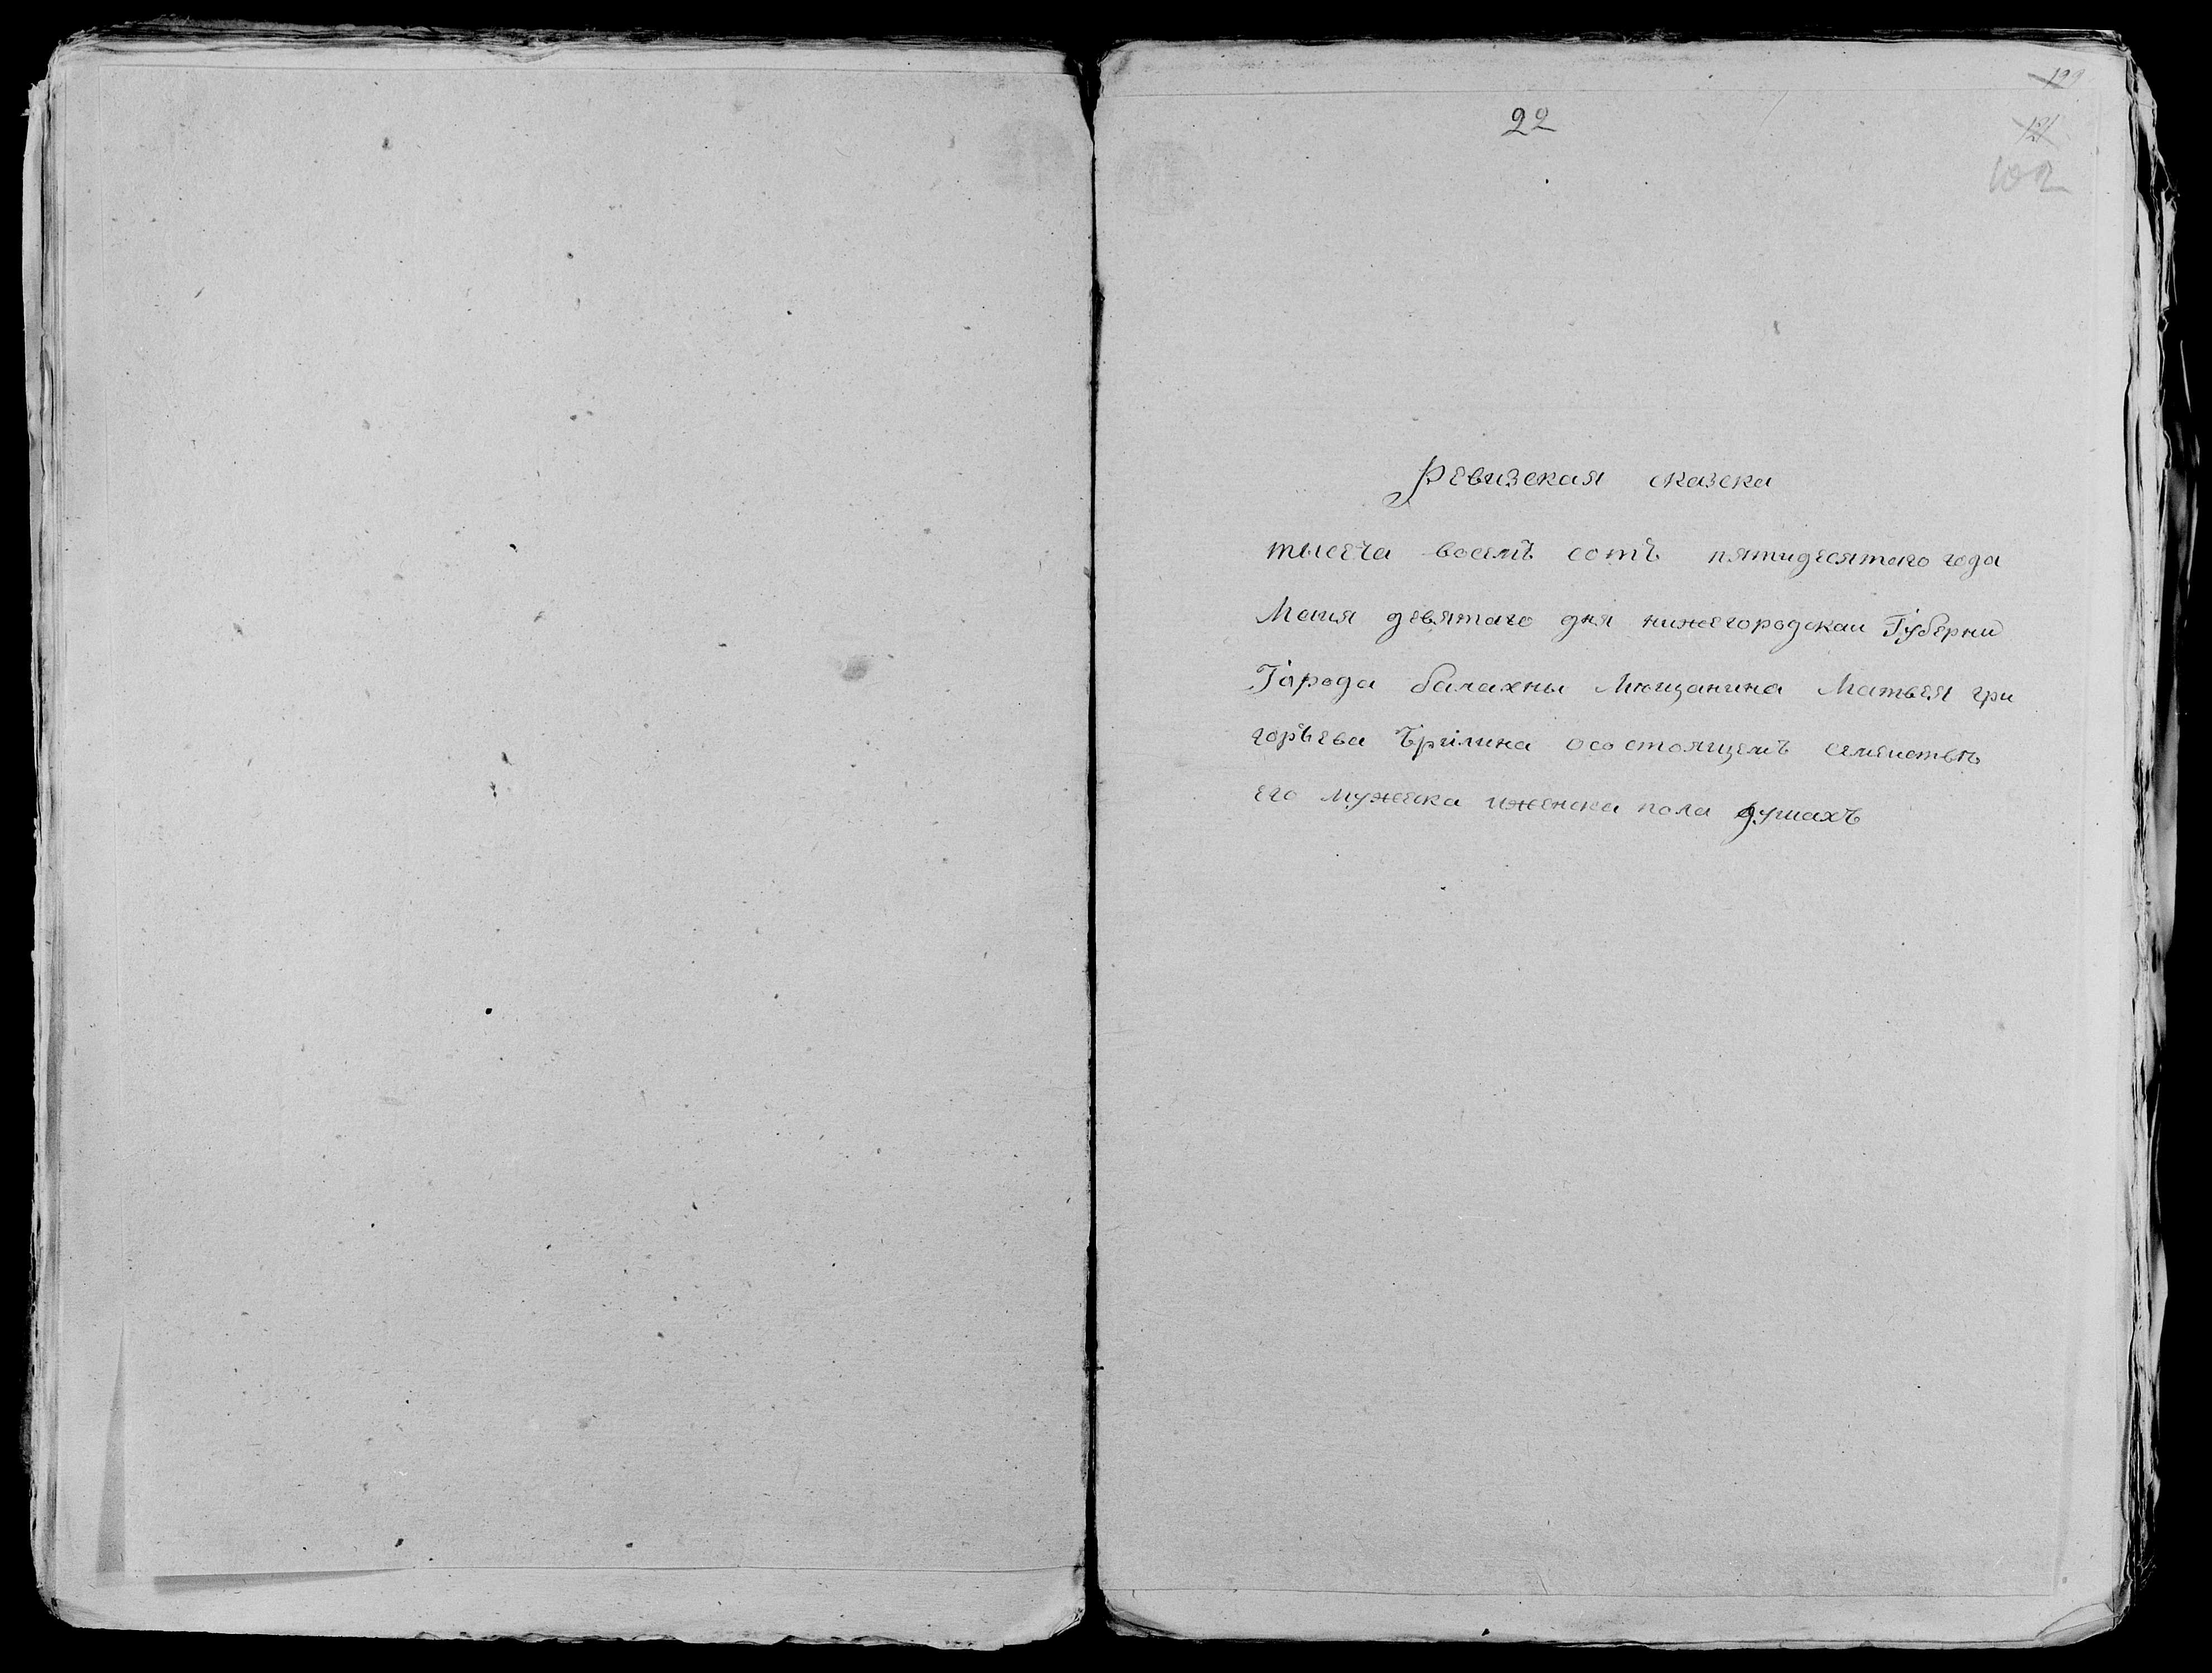 22
102
Ревизская сказска
тысеча восемъ сотъ пятидесятаго года
Маия девятаго дня нижегородскаи Губерни
Гарода балахны Мющанина Матвея гри
горьева осостоящемъ семеиствъ
его мужеска иженска пола душахъ